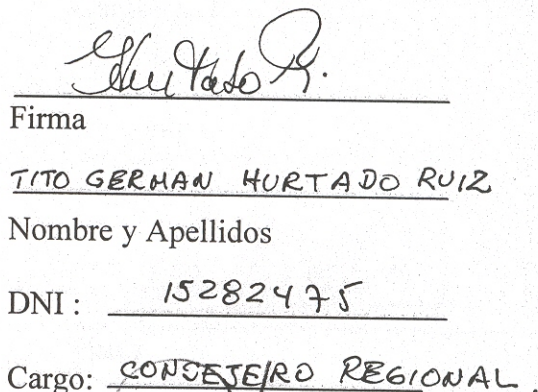 GHurtado R.
Firma
TITO GERMAN HURTADO RUIZ
Nombre y Apellidos
DNI : 15282475
Cargo: CONSEJERO REGIONAL.